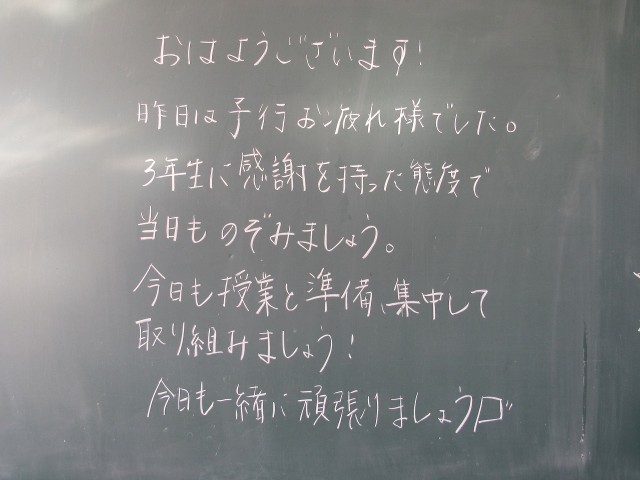 おはようございます!
昨日は予行お疲れ様でした。
3年生に感謝を持った態度で
当日ものぞみましょう。
今日も授業と準備、集中して
取り組みましょう!
今日も一緒に頑張りましょう